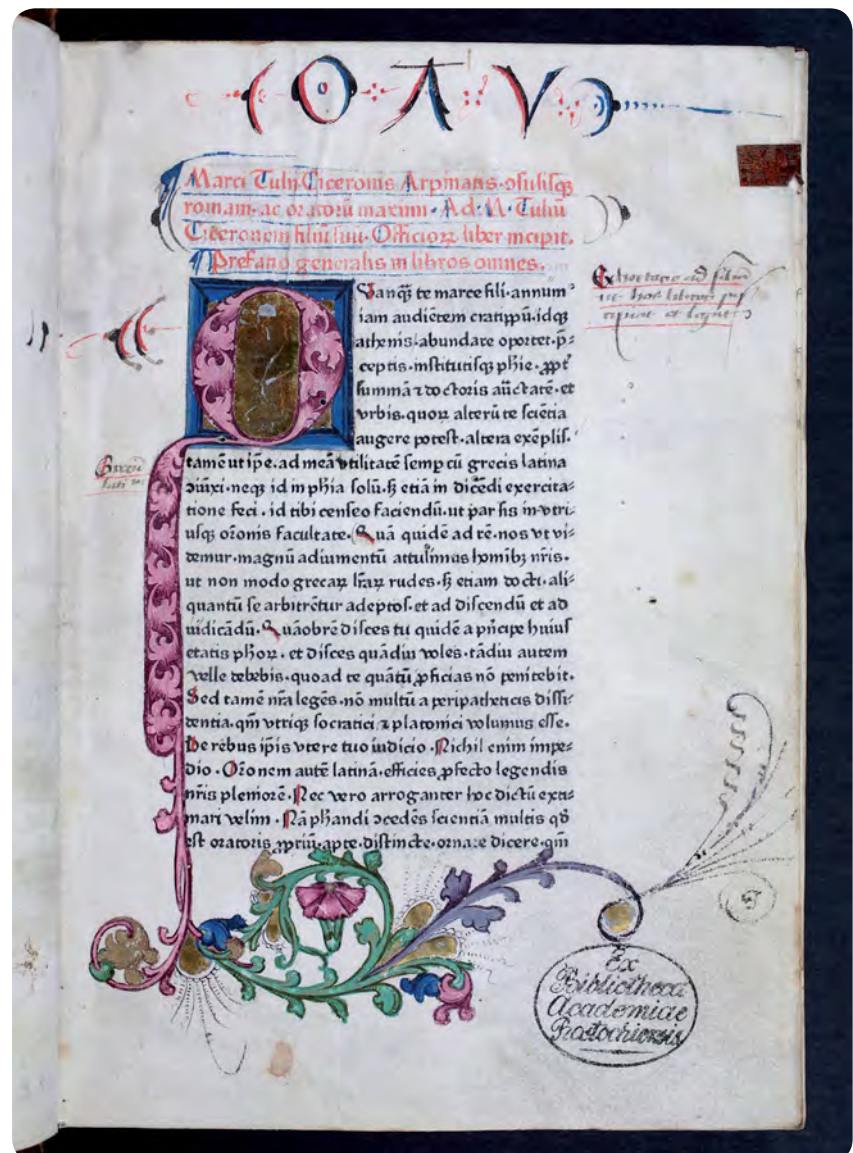 Marci Tulij Ciceronis Arpinatis·ↄsulisqꝫ
romani·ac oratoꝝ maximi·Ad·M·Tuliū
Ciceronem filiū suū·Officioꝝ liber incipit.
Prefatio generalis in libros omnes.
Quanq̄ te marce fili·annum
iam audiētem cratippū·idqꝫ
athenis·abundare oportet·p̄-
ceptis·institutisqꝫ phīe·ꝓpt̄
summā ⁊ doctoris auctātē·et
vrbis·quoꝝ alterū te sciētia
augere potest·altera exēplis·
tamē ut ip̄e·ad meā vtilitatē semp cū grecis latina
ↄiūxi·neqꝫ id in phīa solū·sꝫ etiā in dicēdi exercita-
tione feci·id tibi censeo faciendū·ut par sis in vtri-
usqꝫ or̄onis facultate·Quā quidē ad rē·nos vt vi-
demur·magnū adiumentū attulimus hominībꝫ nr̄is·
ut non modo grecaꝝ lr̄aꝝ rudes·sꝫ etiam docti·ali-
quantū se arbitrētur adeptos·et ad discendū et ad
iudicādū·Quāobrē disces tu quidē a pn̄cipe huius
etatis phōꝝ·et disces quādiu voles·tādiu autem
velle debebis·quoad te quātū ꝓficias nō penitebit·
Sed tamē nr̄a legēs·nō multū a peripatheticis dissi-
dentia·qm̄ vtriqꝫ socratici ⁊ platonici volumus esse·
De rebus ip̄is vtere tuo iudicio·Nichil enim impe-
dio·Or̄onem autē latinā·efficies ꝓfecto legendis
nr̄is pleniorē·Nec vero arroganter hoc dictū exti-
mari velim·Nā phandi ↄcedēs scientiā multis qd̄
est oratoris ꝓpriū·apte·distincte·ornate dicere·qm̄
Ex
Bibliotheca
Academiae